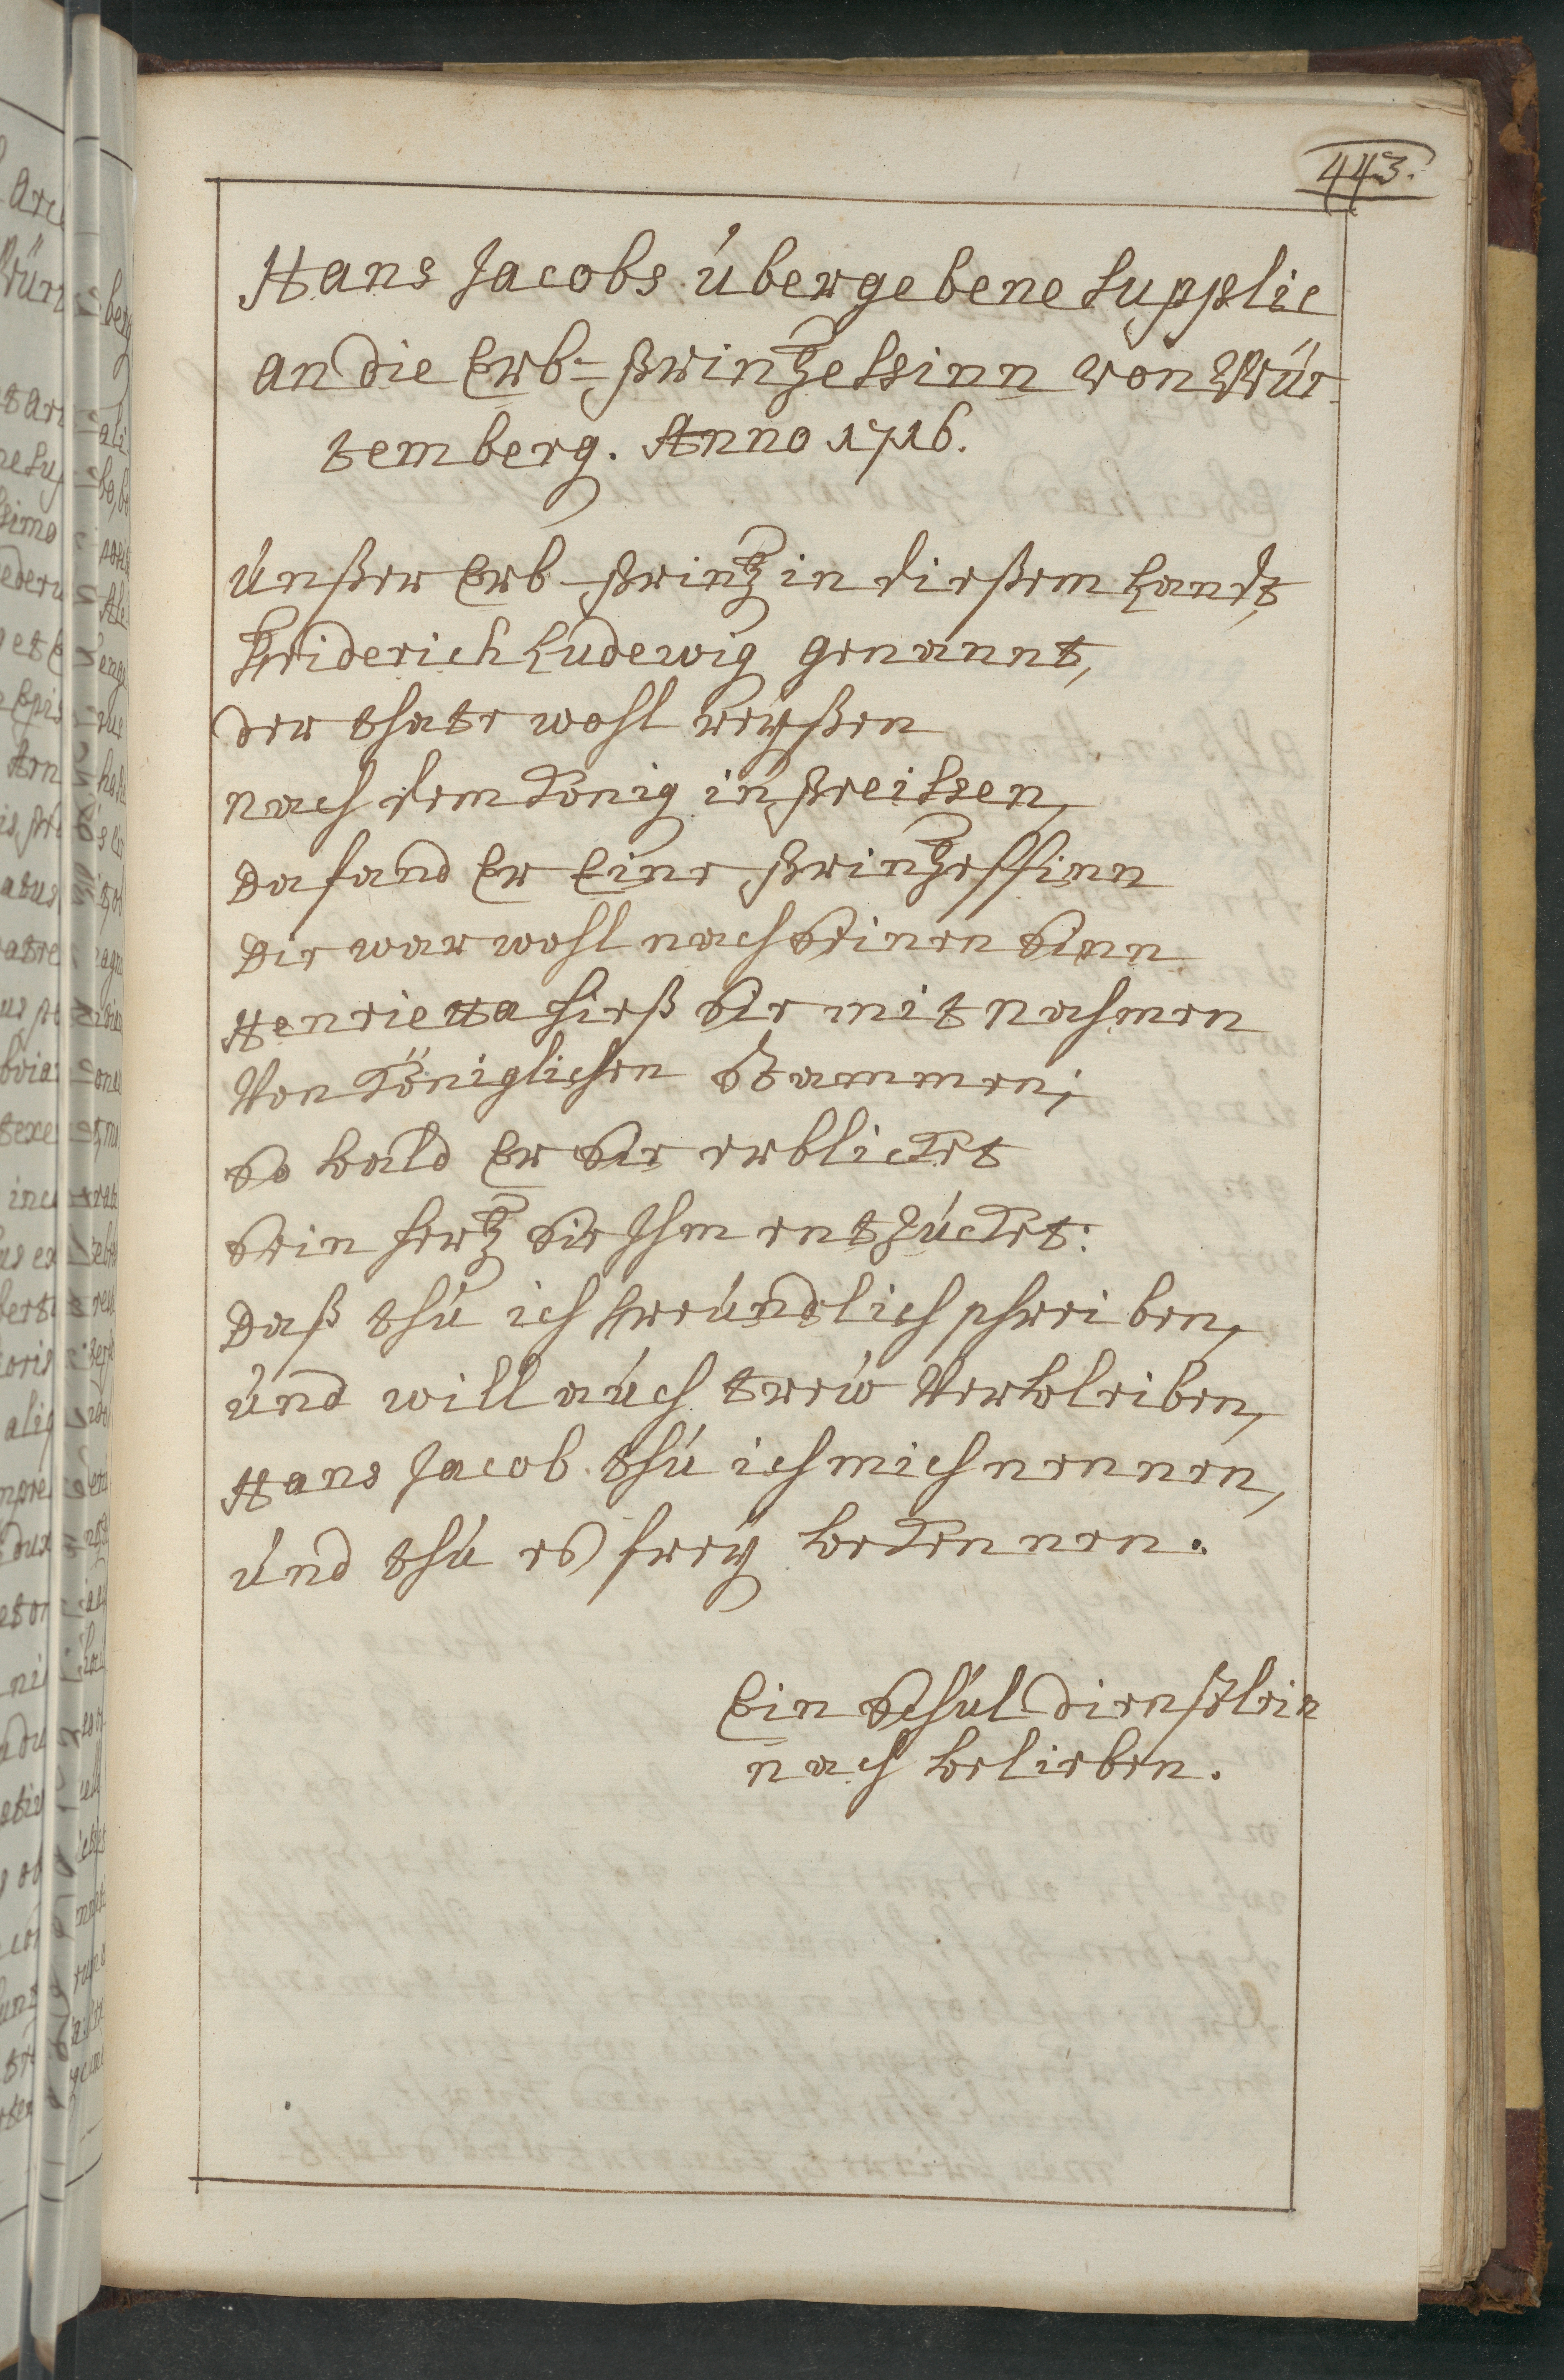 443.
Hans Jacobs übergebene Supplic
an die Erb-Printzessinn von Wür-
temberg. Anno 1716.
Unßer Erb-Printz in dießem Landt,
Friderich Ludewig genannt,
Der thate wohl reyßen
nach dem König in Preissen,
Da fand Er Eine Printzessinn
Die war wohl nach Seinen Sinn
Henrietta hieß Sie mit nahmen
Von Königlichen Stammen;
So bald Er Sie erblicket
Sein hertz Sie Ihm entzücket:
Daß thu ich freundlich schreiben,
und will auch trew Verbleiben,
Hans Jacob thu ich mich nennen,
und thu es frey bekennen.
Ein Schul dienstlein
nach belieben.